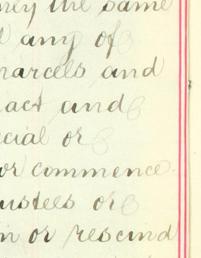 the same
any of
parcels and
act and
cial or
or commence
ustees or
n or rescind